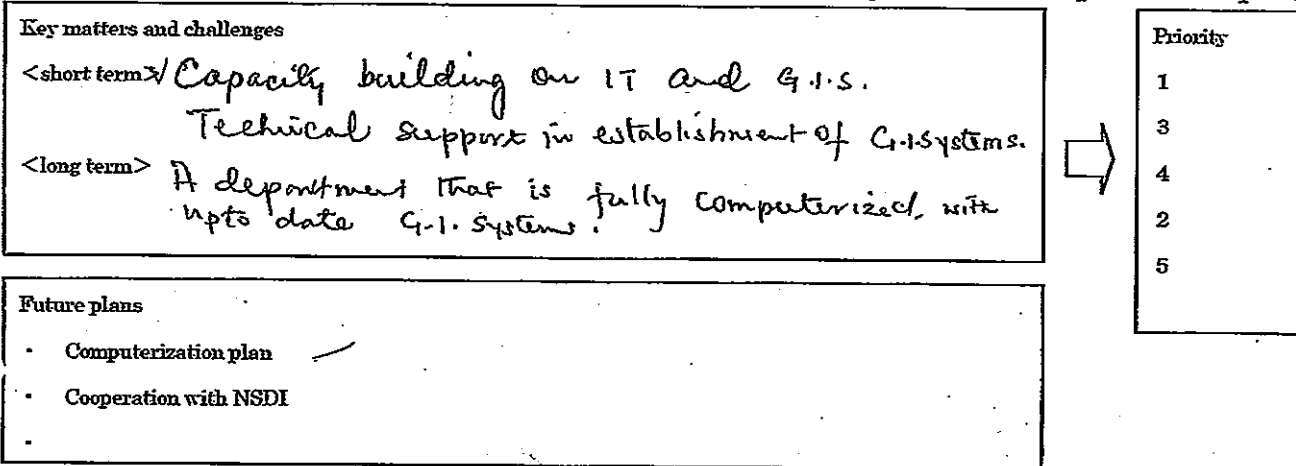 Key matters and challenges
<short term> Capacity building on IT and G.I.S.
Technical support in establishment of G.I.Systems.
<long term> A department that is fully computerized, with
upto date G.I. Systems.
Priority
1
3
4
2
5
Future plans
- Computerization plan
- Cooperation with NSDI
-